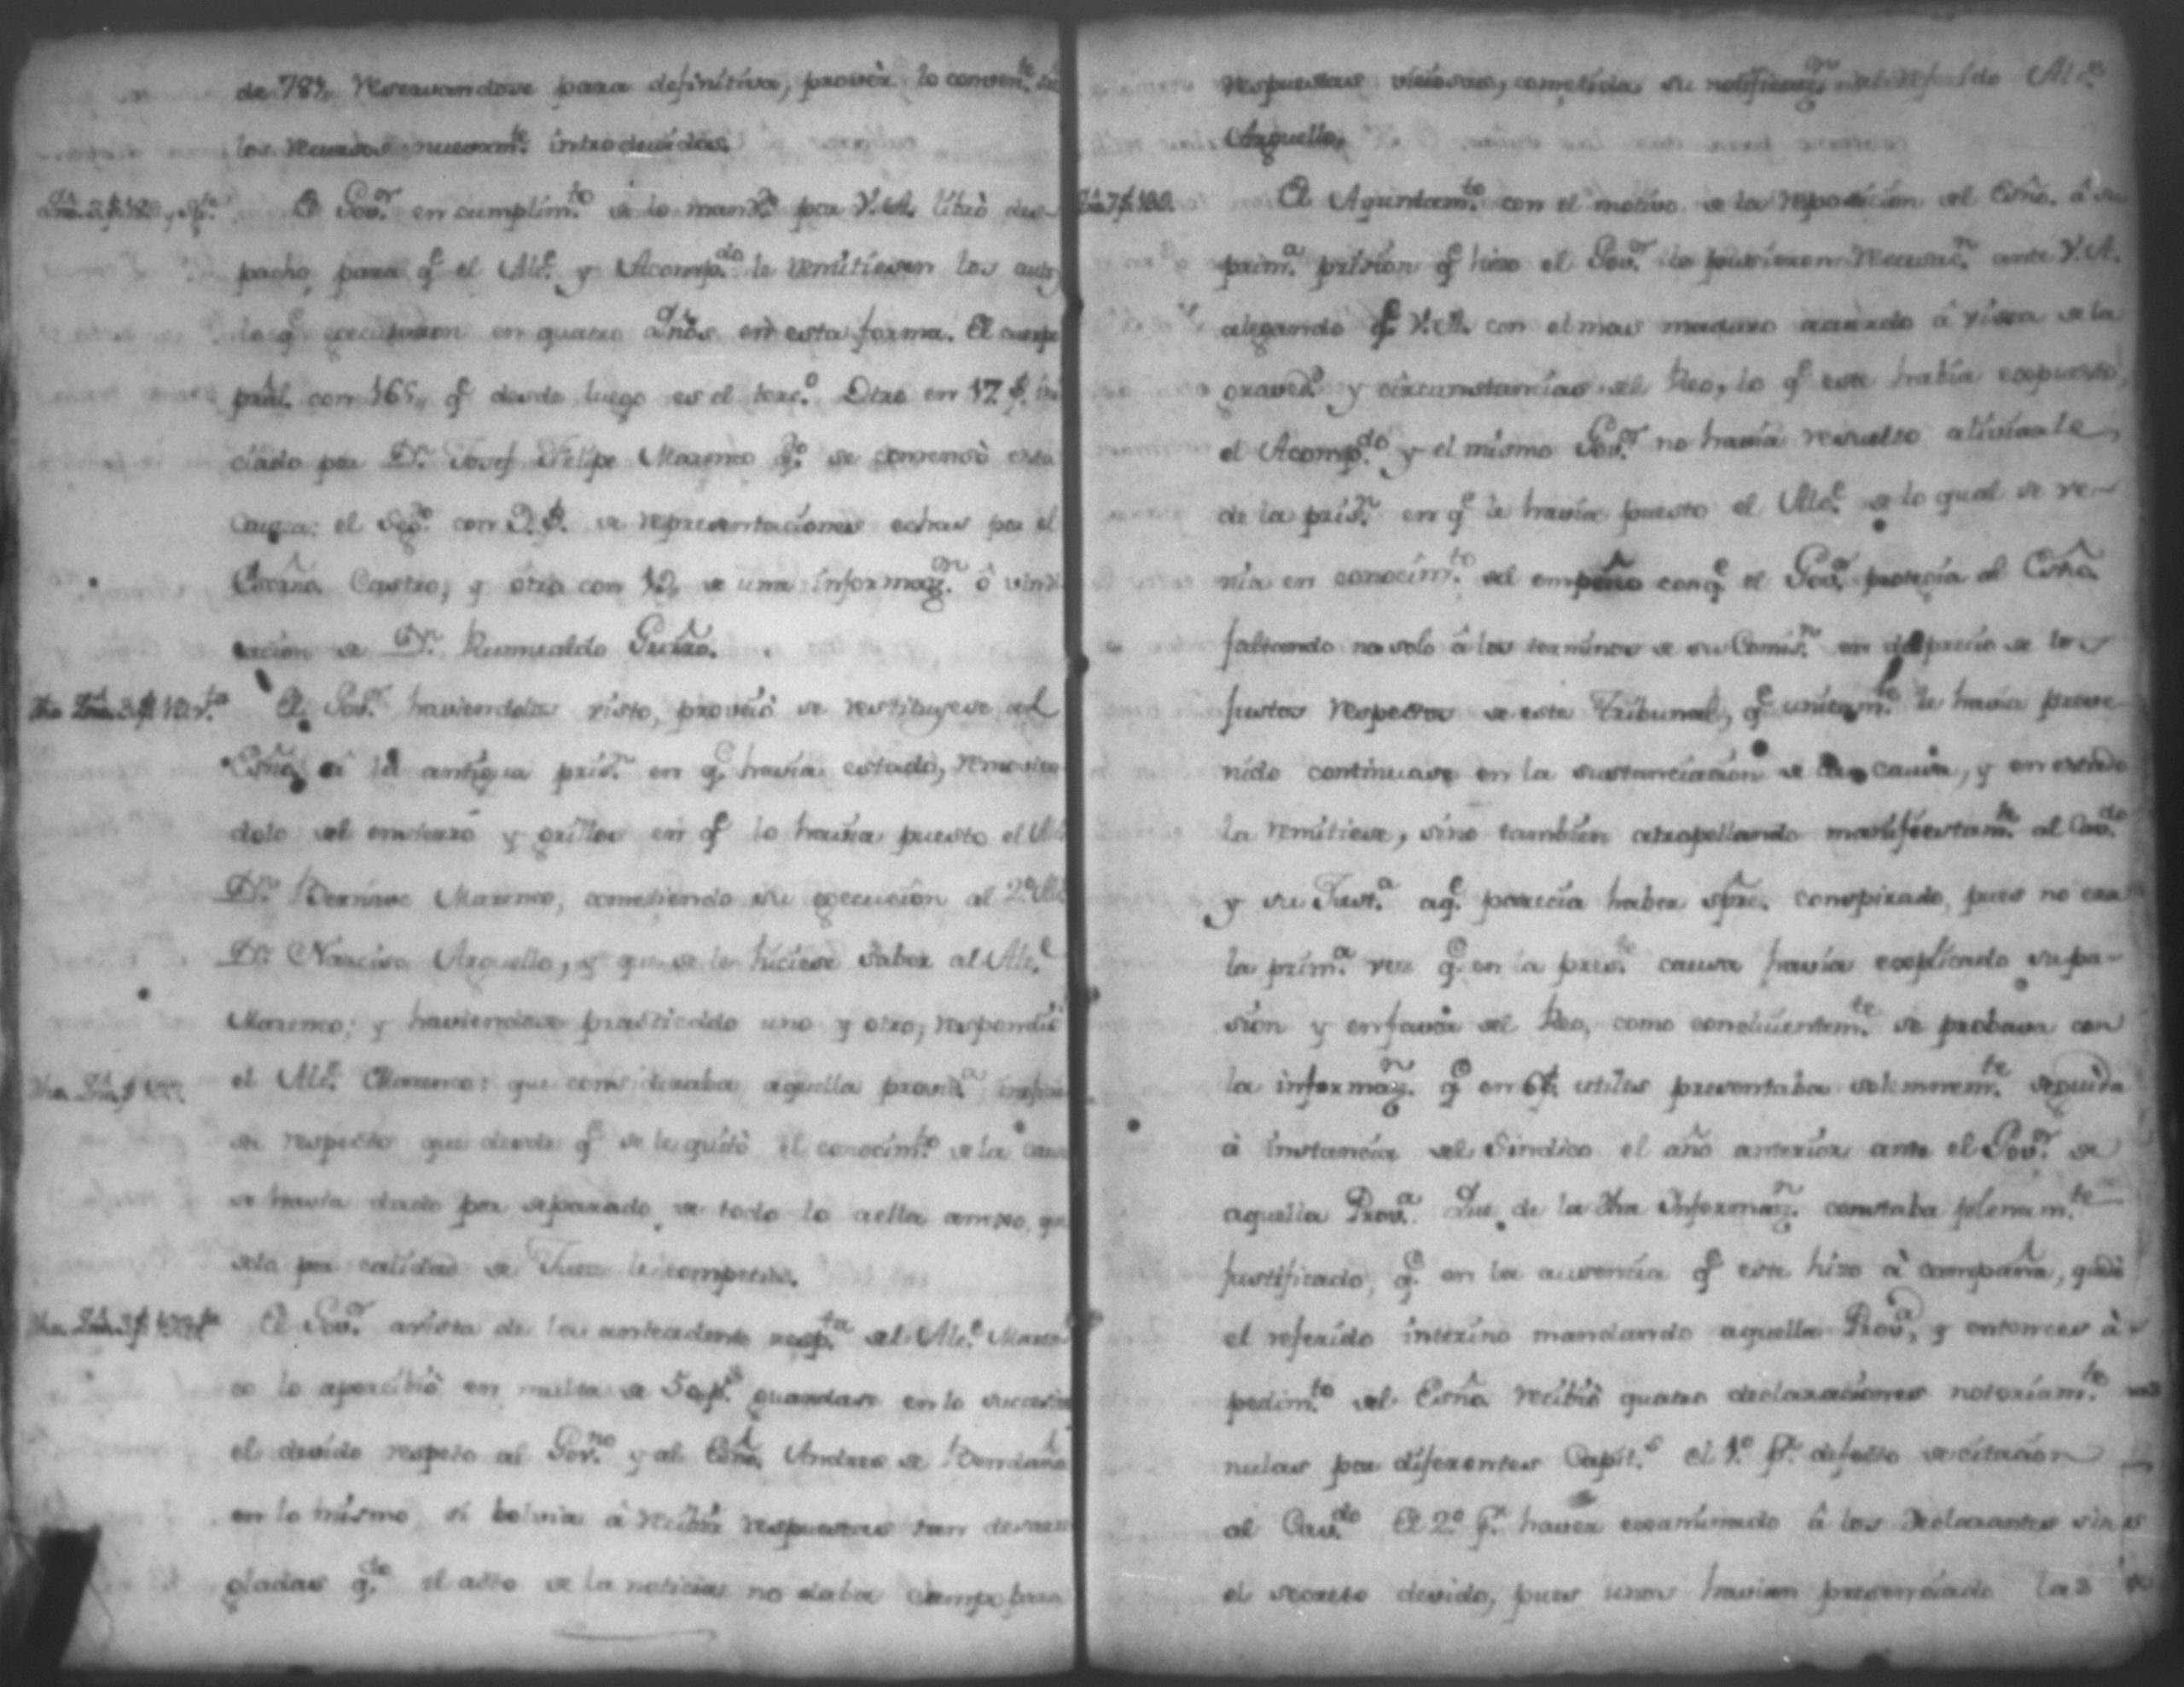 de 784, reservandose para definitiva, proveer lo conven.te
los recursos nuevam.te introducidos.
El Gov.or en cumplim.to de lo mand.do por V.A. libró des-
pacho, para q.e el Alc.e y Acomp.do le remitiesen los autos
lo q.e executaron en quatro Qños. en esta forma. El cuerpo
prãl. con 165,, q.e desde luego es el terc.o Otro en 17 f. ini
ciado por D.n Josef Felipe Marenco q.do se comensò esta
causa: el Seg.do con 2 f. de representaciones echas por el
Escrño. Castro, y otro con 12,, de una informaz.n ô vindi
cacion de D.n Rumualdo Guerro.
Dho Qño. 3. f. 121 v.ta
El Gov.or haviendolos visto, proveiò se restituyese al
Esño. â la antigua pris.n en q.e havia estado, removien
dolo del encierro y grillos en q.e lo havia puesto el Alc.e
D.n Bernave Marenco, cometiendo su execucion al 2.o Alc.e
D.n Narciso Arguello, y que se le hiciese saber al Alc.e
Marenco; y haviendose practicado uno y otro, respondió
el Alc.e Marenco: que consideraba aquella provid.a
de respecto que desde q.e se le quitò el conocim.to de la causa
se havia dado por separado de todo lo aella anexo, que
solo por calidad de Juez le competia.
El Gov.or avista de la antecedente resp.ta del Alc.e Maren
co lo apercibiò en multa de 50 p.s guardase en lo succesivo
el devido respeto al Gov.no y al Esño. Andres de Bendaña
en lo mismo si bolvia à recibir respuestas tan desarre
gladas q.do el acto de la noticia no daba campo para
respuestas viciosas, cometida su notificaz.n al referido Alc.e
Arguello.
Qño. 7 f. 100.
El Ayuntam.to con el motivo de la reposicion del Esño. â su
prim.a prision q.e hizo el Gov.or lo pusieron recurso ante V.A.
alegando q.e V.A. con el mas maduro acuerdo â vista de la
graved.d y circumstancias del Reo, lo q.e este havia expuesto,
el Acomp.do y el mismo Gov.or no havia resuelto aliviarle
de la pris.n en q.e le havia puesto el Alc.e de lo qual se ve-
nia en conocim.to del empeño conq.e el Gov.or protegia al Esño.
faltando no solo â los terminos de su Comis.n en desprecio de los
justos respectos de este Tribunal, q.e unicam.te le havia preve-
nido continuase en la sustanciacion de la causa, y en estado
la remitiese, sino tambien atropellando manifiestam.te al Cav.do
y su Just.a aq.e parecia haber spre. conspirado, pues no era
la prim.a vez q.e en la pres.te causa havia explicado su pa-
sion y enfavor del Reo, como concluientem.te se probava con
la informaz.n q.e en 6 f. utiles presentaba solemnem.te seguida
à instancia del Sindico el año anterior ante el Gov.or de
aquella Prov.a Que de la dha Informaz.n constaba plenam.te
justificado, q.e en la ausencia q.e este hizo à campaña, quedò
el referido interino mandando aquella Prov.a, y entonces à
pedim.to del Esño. recibió quatro declaraciones notoriam.te
nulas por diferentes Capit.s El 1.o p.r defecto de citacion
al Cav.do El 2.o p.r haver examinado â los declarantes sin
el secreto devido, pues unos havian presenciado las